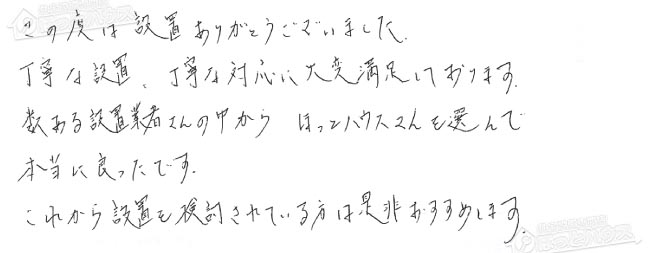 この度は設置ありがとうございました.
丁寧な設置、丁寧な対応に大変満足しております.
数ある設置業者さんの中から ほっとハウスさんを選んで
本当に良ったです.
これから設置を検討されている方は是非おすすめします.